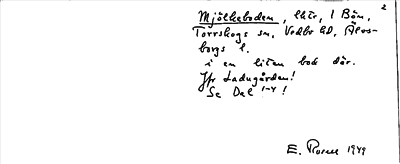 2
Mjölkeboden, lktr, 1 Bön,
Torrskogs sn, Vedbo hd, Älvs-
borgs l.
i en liten bod där.
Jfr Ladugården!
Se Dal 1-4!
E. Rosen 1949